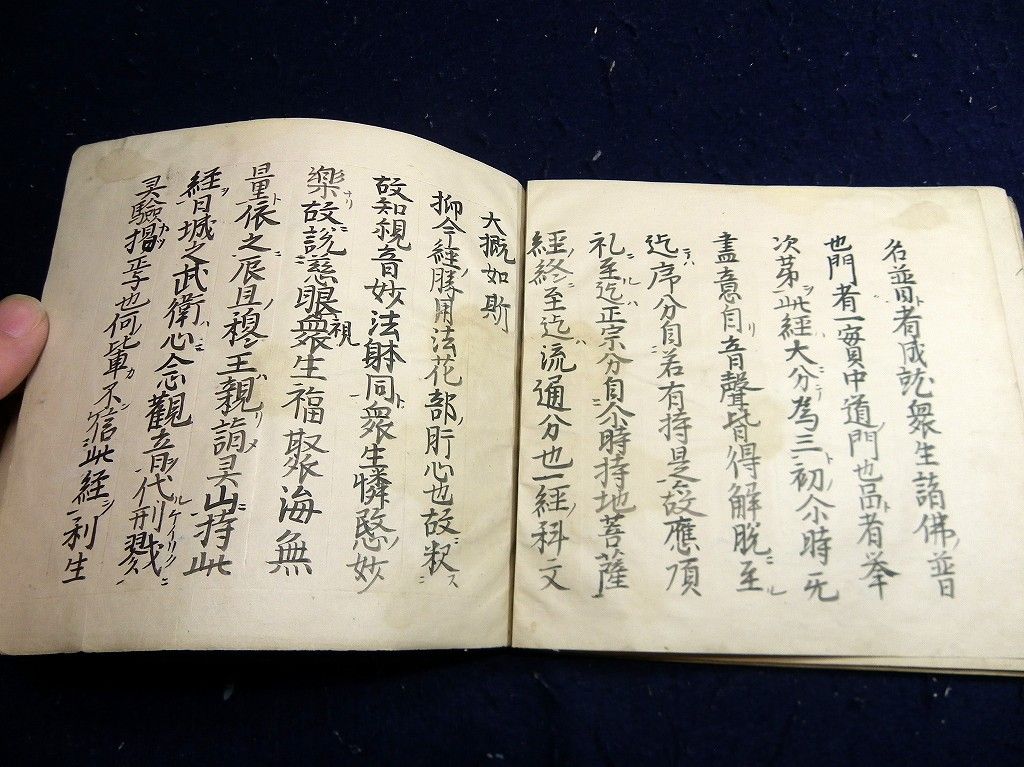 名並旨者成就衆生諸佛普
也門者一實中道門也品者挙
次第此経大分為三初尒時无
盡意自音聲皆得解脱至
迄序分自若有持是故應頂
礼至迄正宗分自尒時持地菩薩
経終至迄流通分也一経科文
大概如斯
抑今経勝用法花部肝心也故釈ス
故知観音妙法躰同衆生憐愍妙
樂故説慈眼視衆生福聚海無
量依之辰旦穆王親詣霊山持此
経月城之武衛心念観音代刑戮
霊験掲焉也何輩不信此経利生